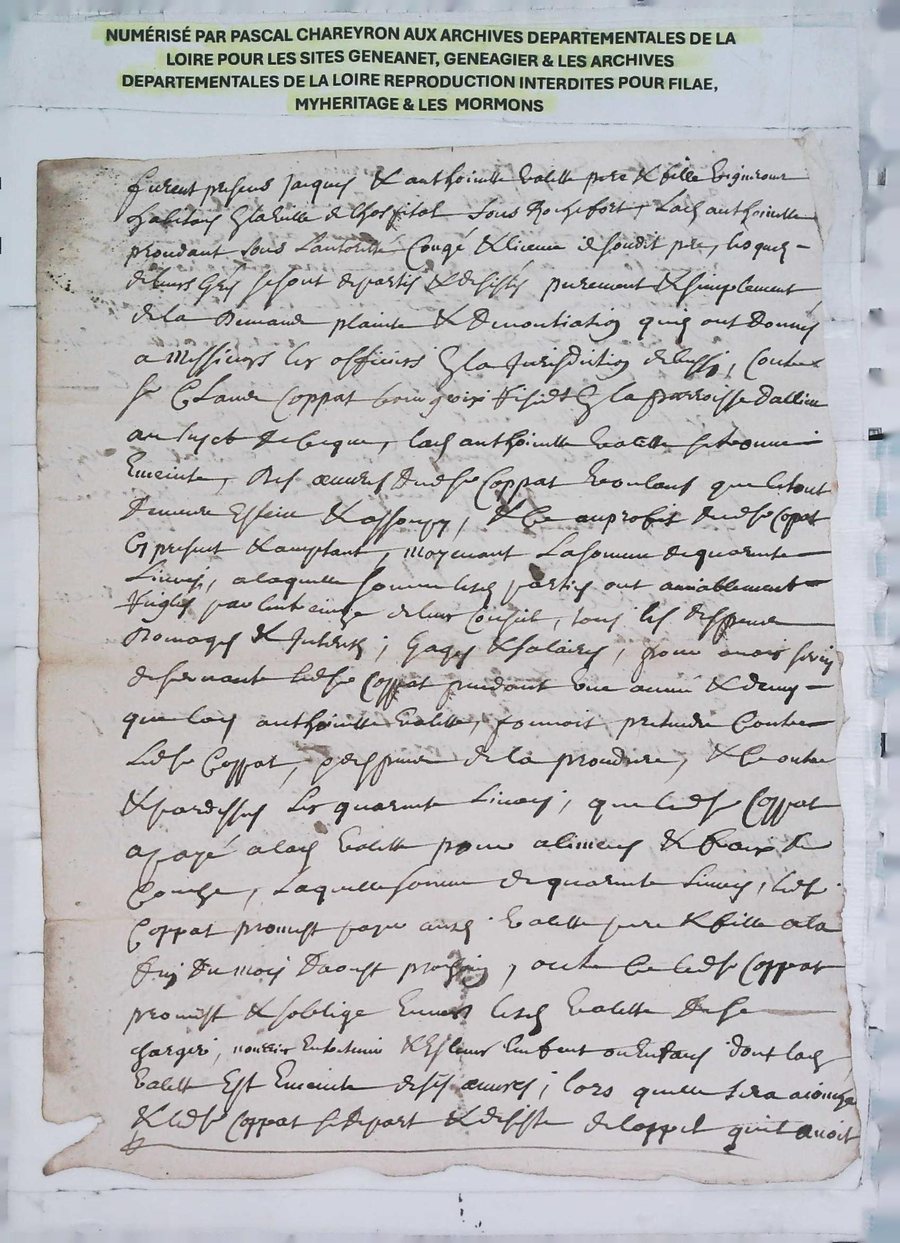 NUMÉRISÉ PAR PASCAL CHAREYRON AUX ARCHIVES DEPARTEMENTALES DE LA
LOIRE POUR LES SITES GENEANET, GENEAGIER & LES ARCHIVES
DEPARTEMENTALES DE LA LOIRE REPRODUCTION INTERDITES POUR FILAE,
MYHERITAGE & LES MORMONS
furent presens Jacques & anthoinette Valette pere & fille vigneron
habitans la ville de lhospital sous Rochefort, lad anthoinette
procedant sous lautorité Congé & licence dud pere, lesquels
de leurs grés se sont departis & desistés purement & simplement
de la plainte & denontiation quils ont donnés
a Messieurs les officiers la Jurisdiction de bussi, Contre
sr Claude Coppat la parroisse dallieu
au sujet de ce que, lad anthoinette Valette
Enceinte, des œuvres dud sr Coppat voulans que le tout
demeure Esteint & assoupy, & ce au profit dud sr Copat
Cy present & acceptant, moyenant la somme de quarente
Livres, a laquelle somme lesd parties ont amiablement
de leur Conseil, tous les despens
Domages & Interests, gages & salaires, pour avoir servy
de servante led sr Coppat pendant une année & demy
que lad anthoinette Valette, pouvoit pretendre Contre
Led sr Coppat, & ce outre
& pardessus Les quarente Livres, que led sr Coppat
a payé a lad Valette pour alimens & frais de
Couche, Laquelle somme de quarente Livres, led sr
Coppat promet payer ausd Valette pere & fille a la
fin du mois daoust prochain, outre ce led sr Coppat
promet & soblige Envers lesd Valette de se
charger, nourrir Entretenir & Eslever Lenfant ou Enfans dont lad
Valette Est Enceinte de ses œuvres, lors quelle sera
& led sr Coppat se depart & desiste de lappel quil avoit